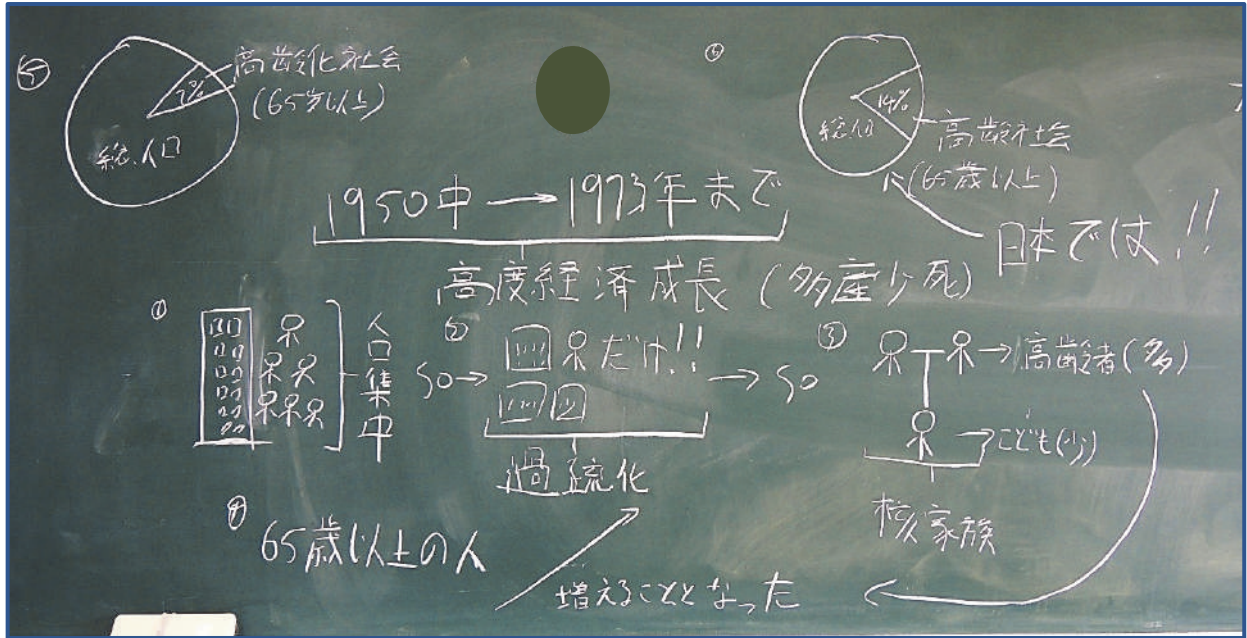 ⑤
7%
高齢化社会
(65歳以上)
総人口
⑥
14%
総人口
高齢社会
(65歳以上)
日本では!!
1950中→1973年まで
高度経済成長(多産少死)
①
人口集中
so→
②
だけ!!
過疎化
→so
③
→高齢者(多)
→こども(少)
核家族
④
65歳以上の人
増えることとなった